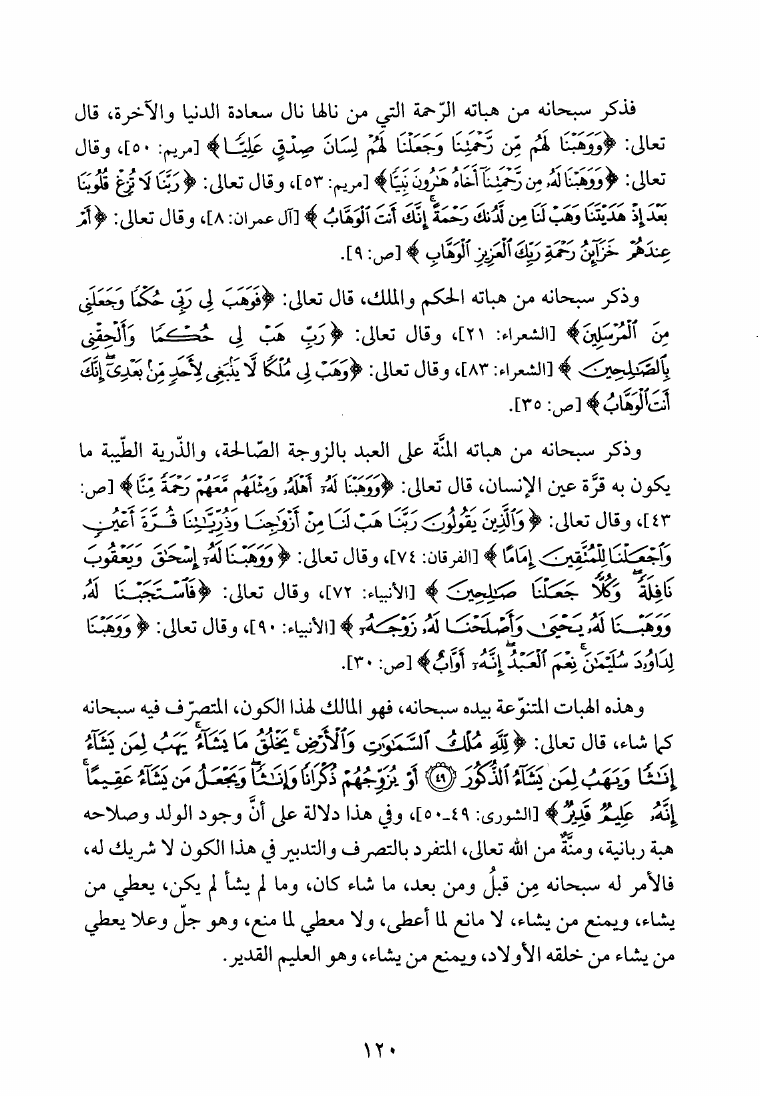 فذكر سبحانه من هباته الرّحمة التي من نالها نال سعادة الدنيا والآخرة، قال
تعالى: ﴿وَوَهَبْنَا لَهُم مِّن رَّحْمَتِنَا وَجَعَلْنَا لَهُمْ لِسَانَ صِدْقٍ عَلِيًّا﴾ [مريم: ٥٠]، وقال
تعالى: ﴿وَوَهَبْنَا لَهُۥ مِن رَّحْمَتِنَآ أَخَاهُ هَٰرُونَ نَبِيًّا﴾ [مريم: ٥٣]، وقال تعالى: ﴿رَبَّنَا لَا تُزِغْ قُلُوبَنَا
بَعْدَ إِذْ هَدَيْتَنَا وَهَبْ لَنَا مِن لَّدُنكَ رَحْمَةً ۚ إِنَّكَ أَنتَ ٱلْوَهَّابُ﴾ [آل عمران: ٨]، وقال تعالى: ﴿أَمْ
عِندَهُمْ خَزَآئِنُ رَحْمَةِ رَبِّكَ ٱلْعَزِيزِ ٱلْوَهَّابِ﴾ [ص: ٩].
وذكر سبحانه من هباته الحكم والملك، قال تعالى: ﴿فَوَهَبَ لِى رَبِّى حُكْمًا وَجَعَلَنِى
مِنَ ٱلْمُرْسَلِينَ﴾ [الشعراء: ٢١]، وقال تعالى: ﴿رَبِّ هَبْ لِى حُكْمًا وَأَلْحِقْنِى
بِٱلصَّٰلِحِينَ﴾ [الشعراء: ٨٣]، وقال تعالى: ﴿وَهَبْ لِى مُلْكًا لَّا يَنۢبَغِى لِأَحَدٍ مِّنۢ بَعْدِىٓ ۖ إِنَّكَ
أَنتَ ٱلْوَهَّابُ﴾ [ص: ٣٥].
وذكر سبحانه من هباته المنَّة على العبد بالزوجة الصّالحة، والذّرية الطّيبة ما
يكون به قرَّة عين الإنسان، قال تعالى: ﴿وَوَهَبْنَا لَهُۥٓ أَهْلَهُۥ وَمِثْلَهُم مَّعَهُمْ رَحْمَةً مِّنَّا﴾ [ص:
٤٣]، وقال تعالى: ﴿وَٱلَّذِينَ يَقُولُونَ رَبَّنَا هَبْ لَنَا مِنْ أَزْوَٰجِنَا وَذُرِّيَّٰتِنَا قُرَّةَ أَعْيُنٍ
وَٱجْعَلْنَا لِلْمُتَّقِينَ إِمَامًا﴾ [الفرقان: ٧٤]، وقال تعالى: ﴿وَوَهَبْنَا لَهُۥٓ إِسْحَٰقَ وَيَعْقُوبَ
نَافِلَةً ۖ وَكُلًّا جَعَلْنَا صَٰلِحِينَ﴾ [الأنبياء: ٧٢]، وقال تعالى: ﴿فَٱسْتَجَبْنَا لَهُۥ
وَوَهَبْنَا لَهُۥ يَحْيَىٰ وَأَصْلَحْنَا لَهُۥ زَوْجَهُۥٓ﴾ [الأنبياء: ٩٠]، وقال تعالى: ﴿وَوَهَبْنَا
لِدَاوُۥدَ سُلَيْمَٰنَ ۚ نِعْمَ ٱلْعَبْدُ ۖ إِنَّهُۥٓ أَوَّابٌ﴾ [ص: ٣٠].
وهذه الهبات المتنوّعة بيده سبحانه، فهو المالك لهذا الكون، المتصرّف فيه سبحانه
كما شاء، قال تعالى: ﴿لِّلَّهِ مُلْكُ ٱلسَّمَٰوَٰتِ وَٱلْأَرْضِ ۚ يَخْلُقُ مَا يَشَآءُ ۚ يَهَبُ لِمَن يَشَآءُ
إِنَٰثًا وَيَهَبُ لِمَن يَشَآءُ ٱلذُّكُورَ ۝٤٩ أَوْ يُزَوِّجُهُمْ ذُكْرَانًا وَإِنَٰثًا ۖ وَيَجْعَلُ مَن يَشَآءُ عَقِيمًا ۚ
إِنَّهُۥ عَلِيمٌ قَدِيرٌ﴾ [الشورى: ٤٩ـ٥٠]، وفي هذا دلالة على أنَّ وجود الولد وصلاحه
هبة ربانية، ومنَّةٌ من الله تعالى، المتفرد بالتصرف والتدبير في هذا الكون لا شريك له،
فالأمر له سبحانه مِن قبلُ ومن بعد، ما شاء كان، وما لم يشأ لم يكن، يعطي من
يشاء، ويمنع من يشاء، لا مانع لما أعطى، ولا معطي لما منع، وهو جلّ وعلا يعطي
من يشاء من خلقه الأولاد، ويمنع من يشاء، وهو العليم القدير.
١٢٠